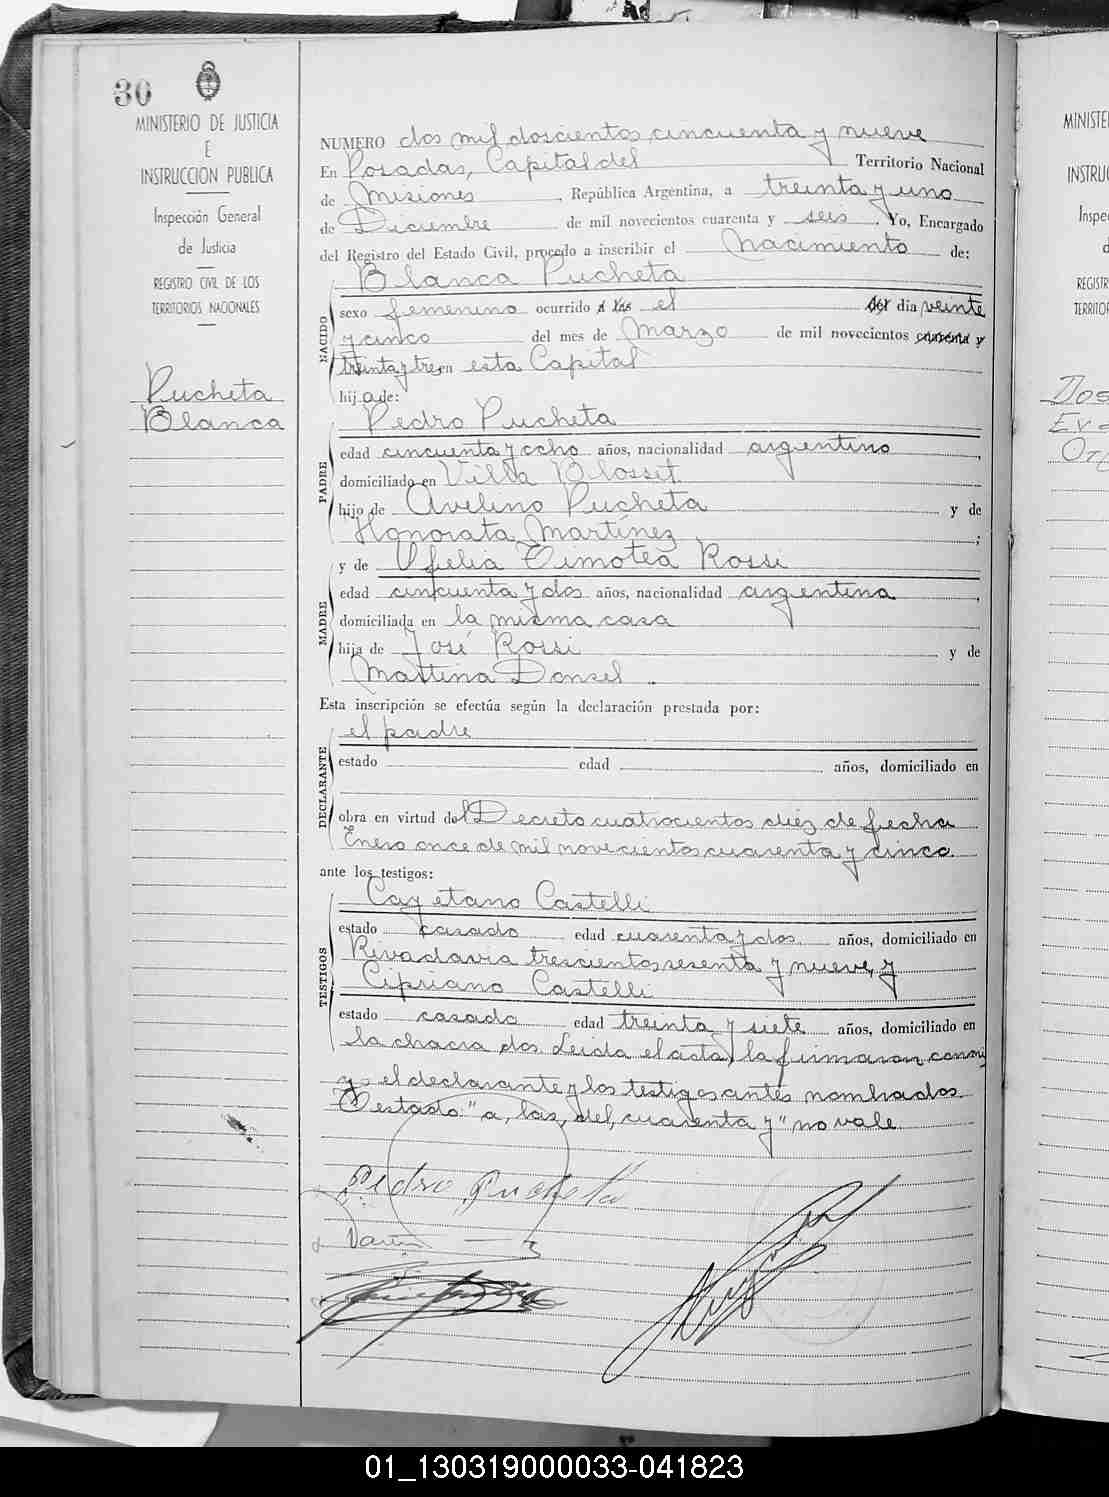 30
MINISTERIO DE JUSTICIA
E
INSTRUCCION PUBLICA
Inspección General
de Justicia
REGISTRO CIVIL DE LOS
TERRITORIOS NACIONALES
Pucheta
Blanca
NUMERO dos mil doscientos cincuenta y nueve
En Posadas, Capital del Territorio Nacional
de Misiones, República Argentina, a treinta y uno
de Diciembre de mil novecientos cuarenta y seis. Yo, Encargado
del Registro del Estado Civil, procedo a inscribir el Nacimiento de:
Blanca Pucheta
NACIDO
sexo femenino ocurrido a las el del dia veinte
y cinco del mes de Marzo de mil novecientos cuarenta y
treinta y tres, en esta Capital
hija de:
Pedro Pucheta
PADRE
edad cincuenta y ocho años, nacionalidad argentino,
domiciliado en Villa Blosset
hijo de Avelino Pucheta y de
Honorata Martínez;
y de Ofelia Timotea Rossi
MADRE
edad cincuenta y dos años, nacionalidad argentina,
domiciliada en la misma casa
hija de José Rossi y de
Martina Donsel.
Esta inscripción se efectúa según la declaración prestada por:
el padre
DECLARANTE
estado edad años, domiciliado en
obra en virtud del Decreto cuatrocientos diéz de fecha
Enero once de mil novecientos cuarenta y cinco.
ante los testigos:
Cayetano Castelli
TESTIGOS
estado casado edad cuarenta y dos años, domiciliado en
Rivadavia trescientos sesenta y nueve, y
Cipriano Castelli
estado casado edad treinta y siete años, domiciliado en
la chacra dos. Leida el acta, la firmaron conmi
go el declarante y los testigos antes nombrados.
Testado: "a, las, del, cuarenta y" no vale.
Pedro Pucheta
MINISTE
INSTRUC
Inspec
d
REGISTR
TERRITOR
Dos
01_130319000033-041823